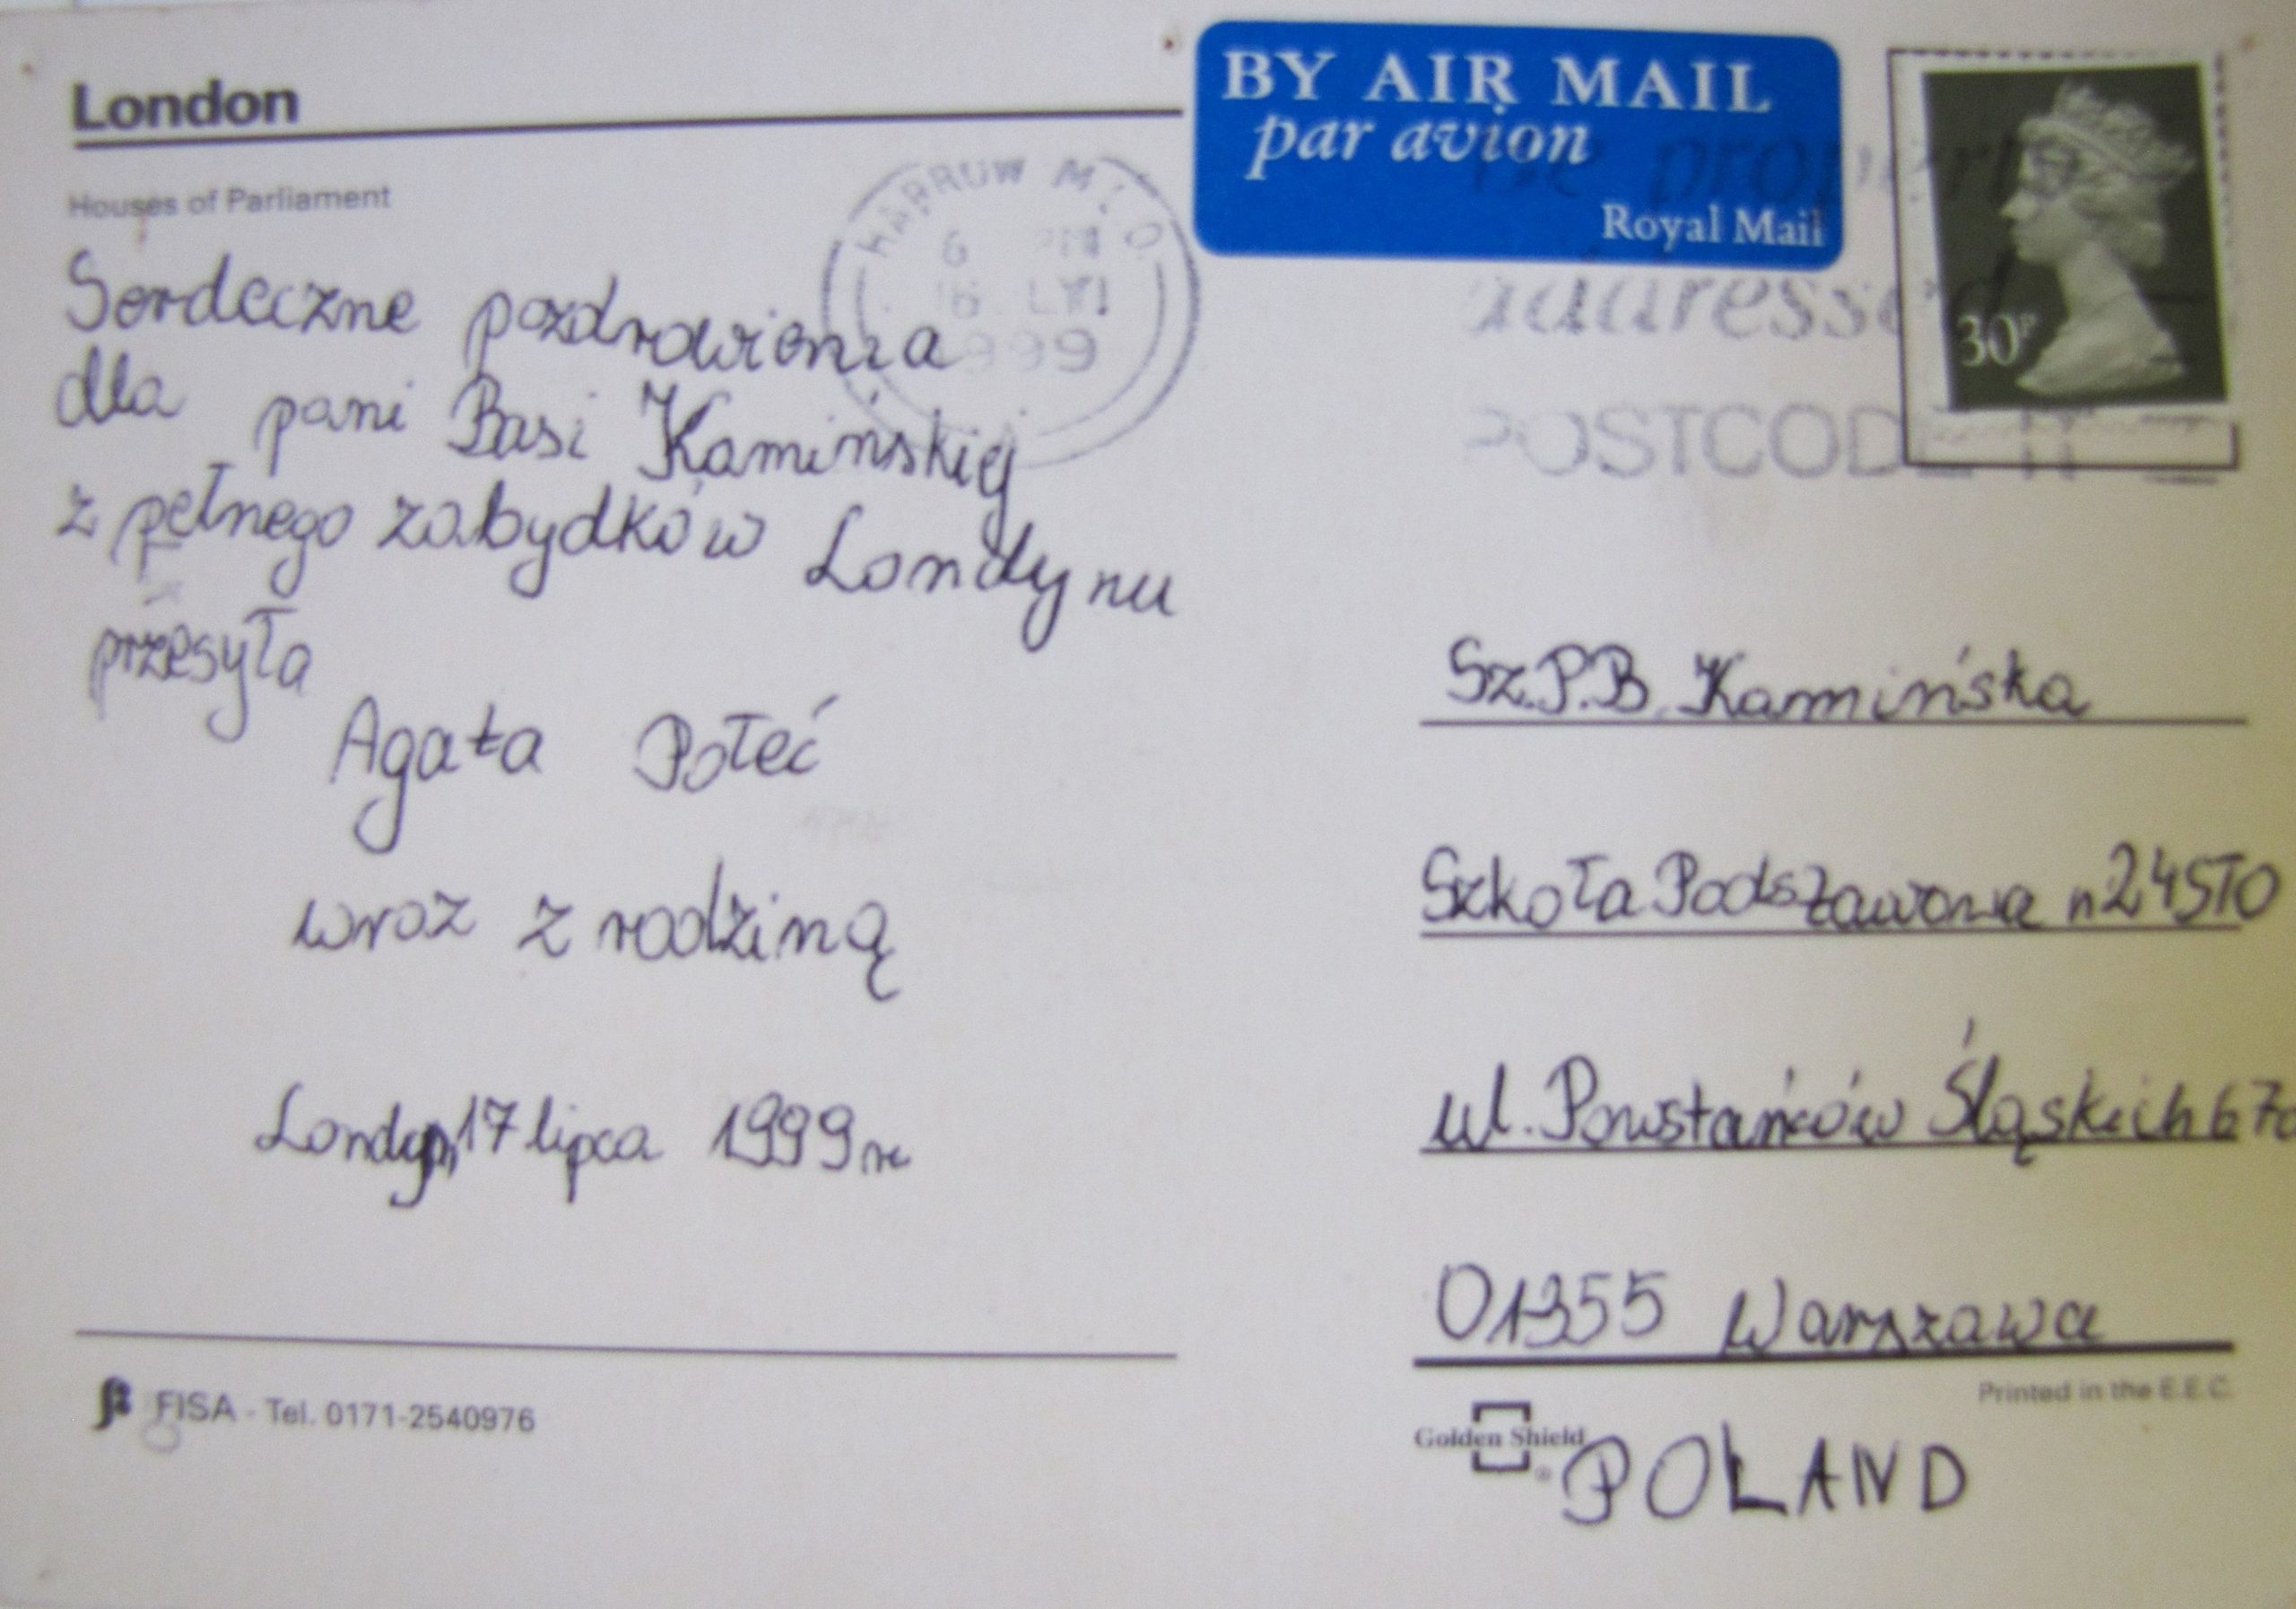 London
Houses of Parliament
Serdeczne pozdrowienia
dla pani Basi Kamińskiej
z pełnego zabydków Londynu
przesyła
Agata Połeć
wraz z rodziną
Londyn, 17 lipca 1999 r
FISA - Tel. 0171-2540976
HARROW M.L.O.
6 PM
1999
BY AIR MAIL
par avion
Royal Mail
be properly
addressed
POSTCODE IT
30P
Sz.P.B. Kamińska
Szkoła Podstawowa
ul. Powstańców Śląskich 67a
01355 Warszawa
Printed in the E.E.C.
Golden Shield
POLAND